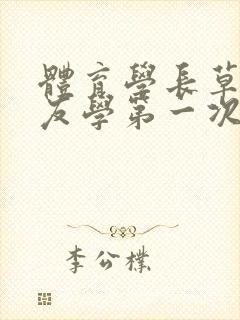 體育學長草
友學第一次
李公樸